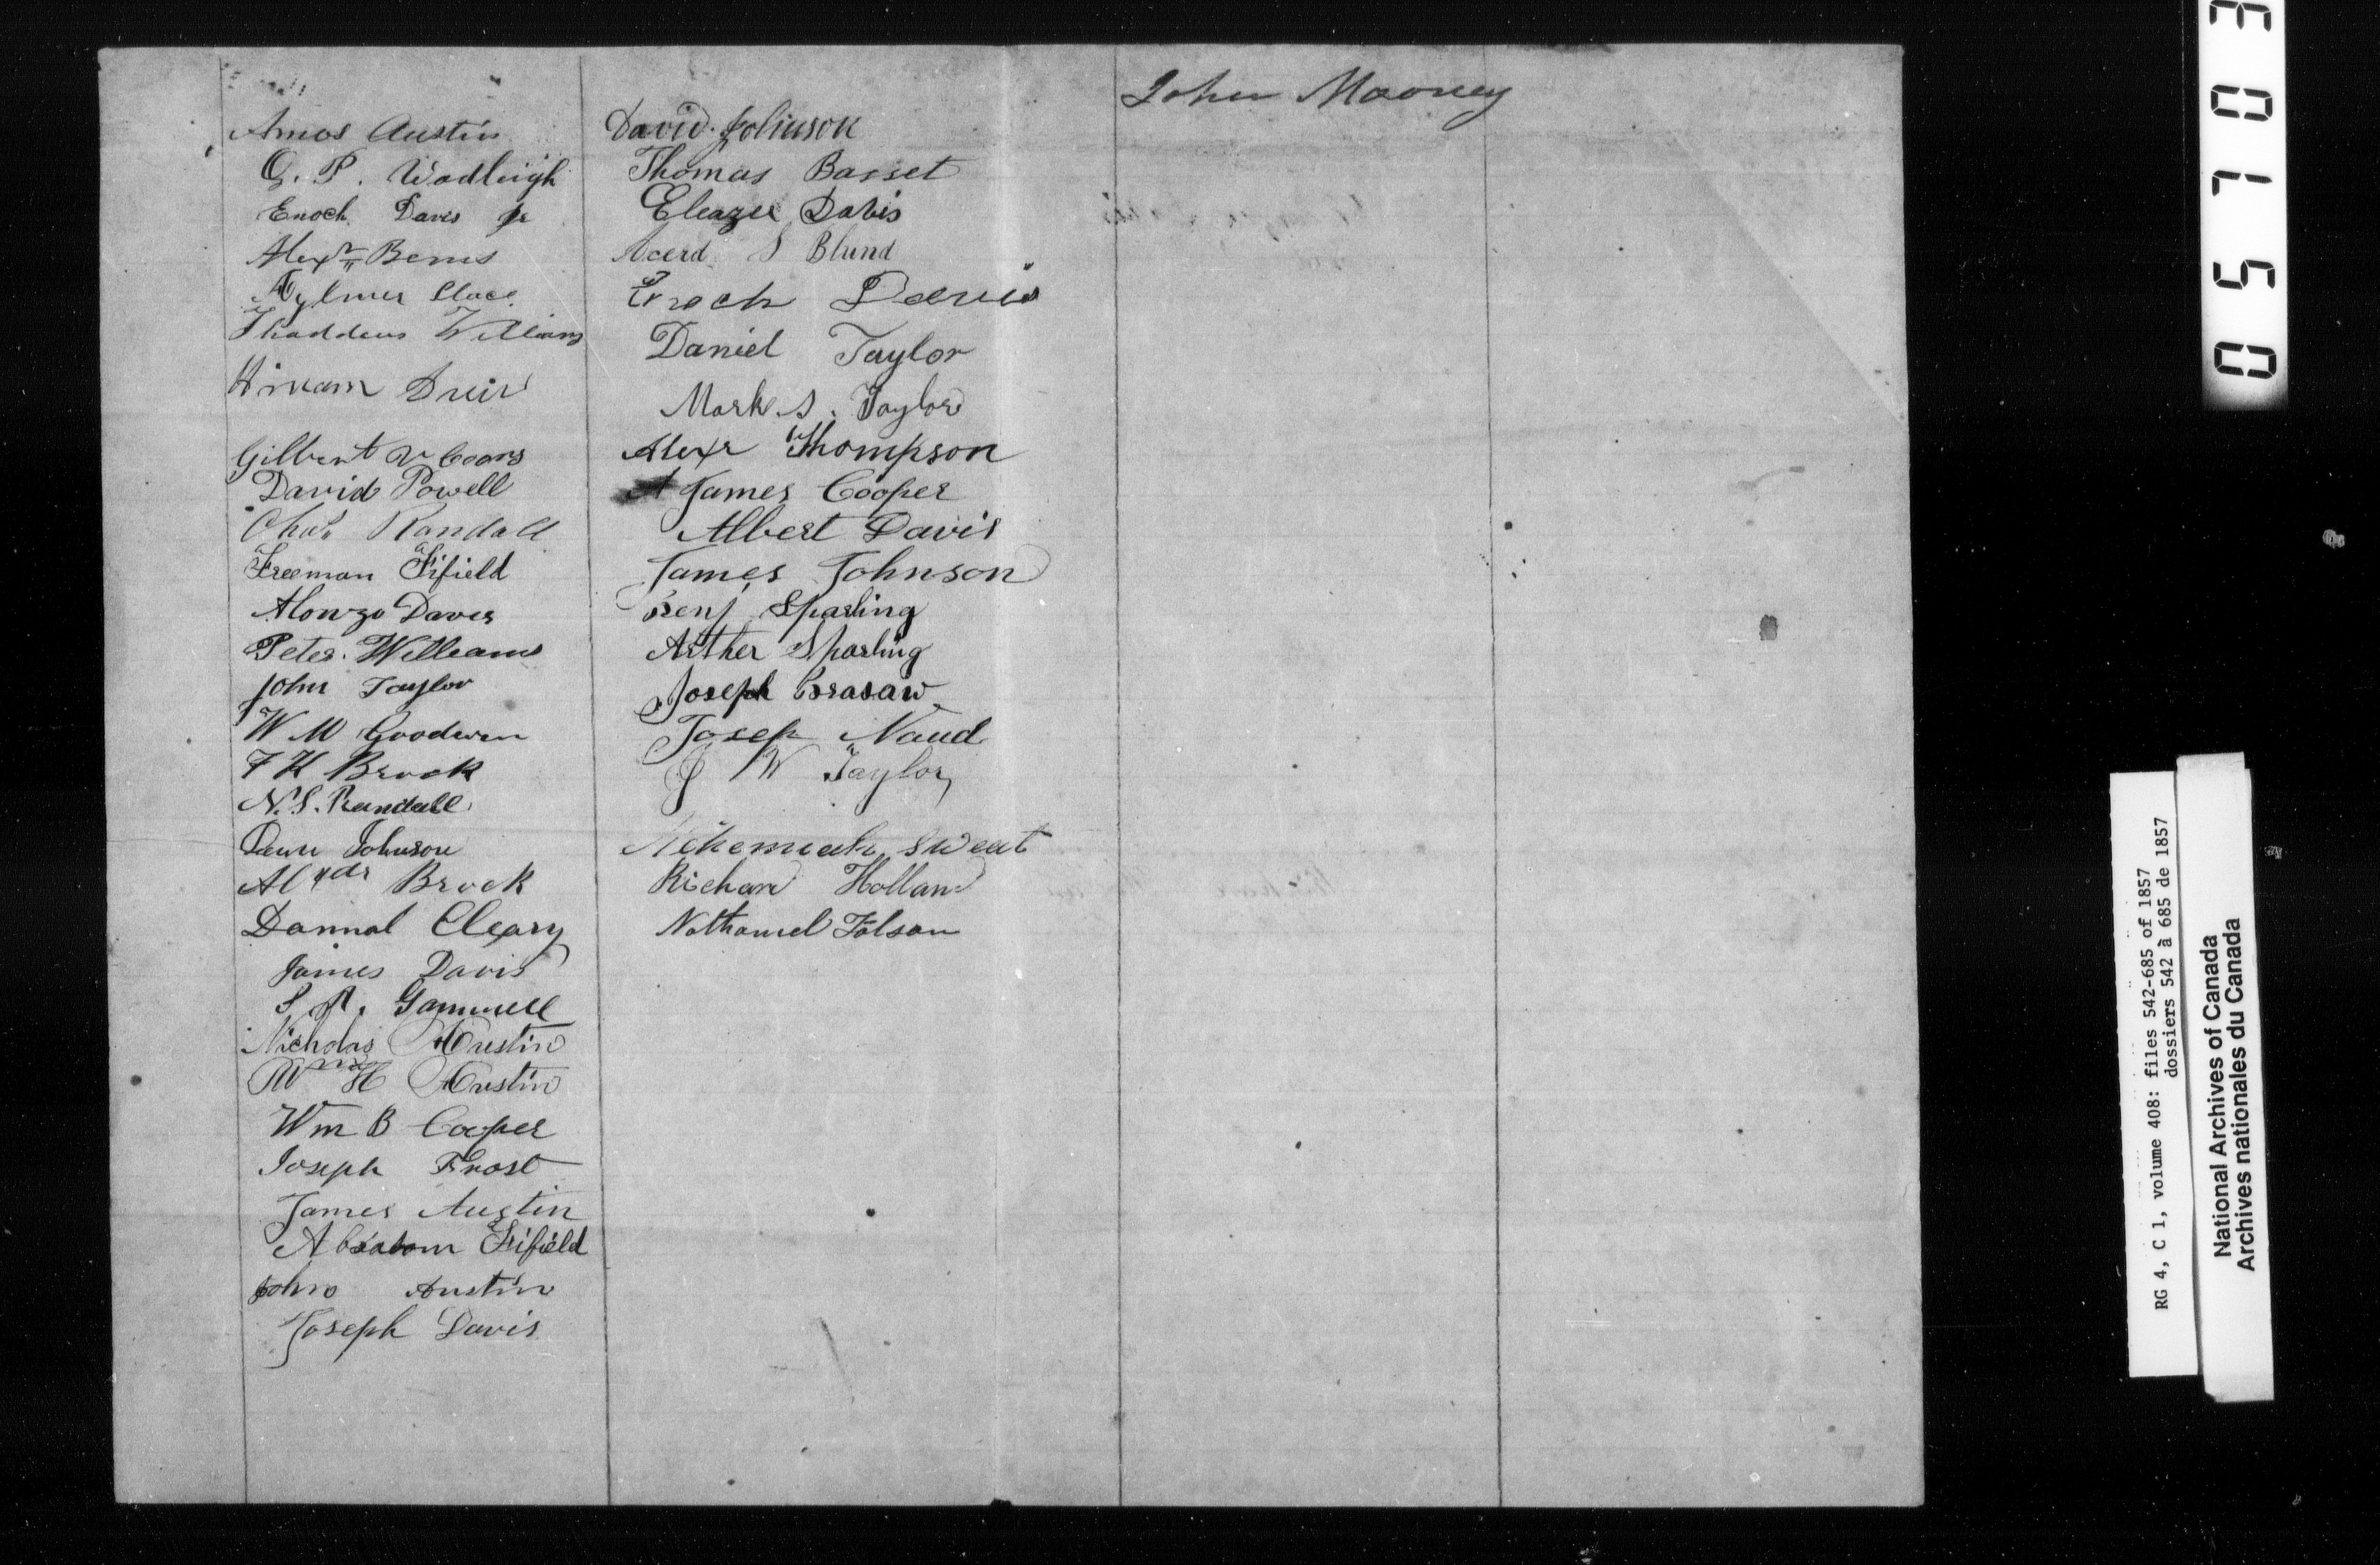 Amos Austin
G. P. Wadleigh
Enoch Davis Jr
Alexr Bemis
Aylmer Place
Thaddeus Williams
Hiram
Gilbert
David Powell
Chas. Randall
Freeman Fifield
Alonzo Daves
Peter Williams
John Taylor
W M Goodwin
F H Brock
N. S. Randall
Johnson
Alxdr Brock
Dannal Cleary
James Davis
S A. Gammell
Nicholas Austin
Wm H Austin
Wm B Cooper
Joseph Frost
James Austin
Absalom Fifield
John Austin
Joseph Davis
David Johnson
Thomas Basset
Eleazer Davis
S Blund
Enoch Davis
Daniel Taylor
Mark S. Taylor
Alexr Thompson
A James Cooper
Albert Davis
James Johnson
Benj Sparling
Arther Sparling
Joseph Brasaw
Josep Naud
J W Taylor
Nehemiah Sweat
Richard Holland
Nathaniel Folsom
John Mooney
05703
RG 4, C 1, volume 408: files 542-685 of 1857
dossiers 542 à 685 de 1857
National Archives of Canada
Archives nationales du Canada